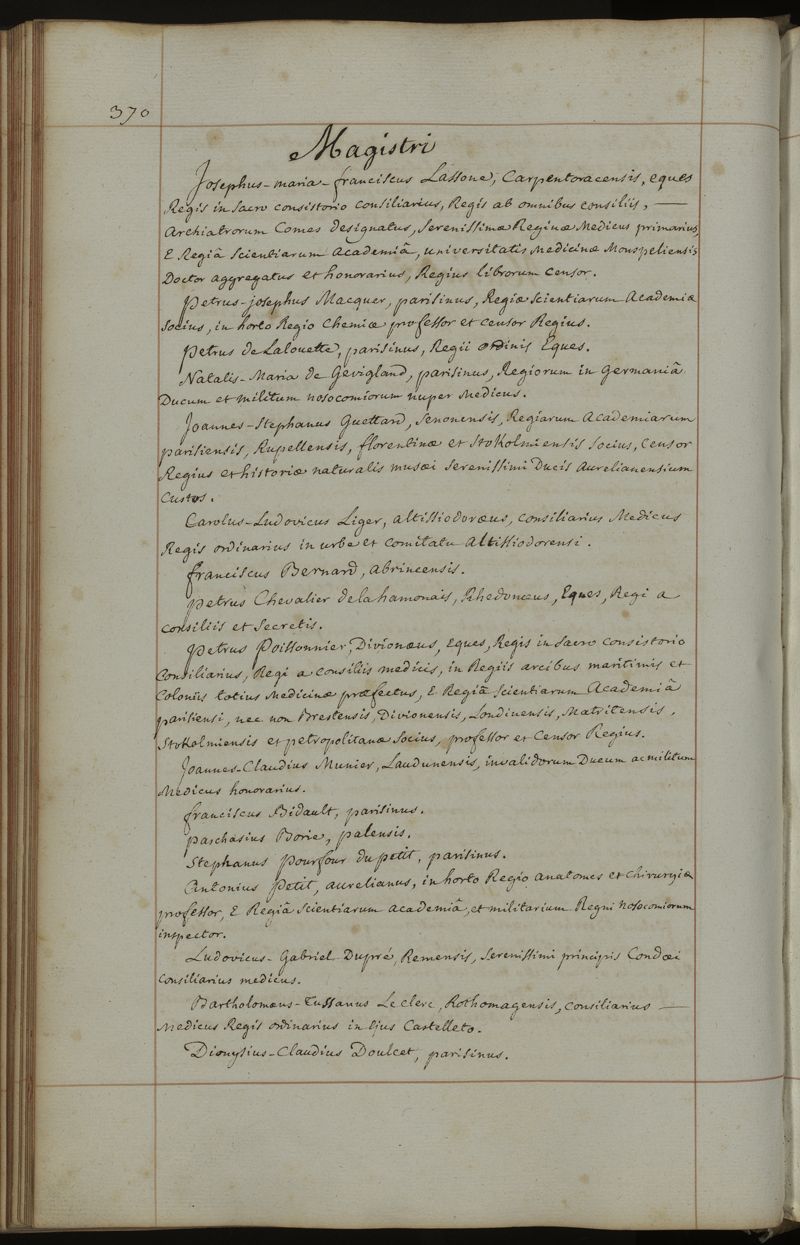 370
Magistri
Josephus-maria-franciscus Lassone, Carpentoracensis, eques
Regis in sacro consistorio consiliarius, Regis ab omnibus consiliis, —
archiatrorum Comes designatus, serenissimæ Reginæ Medicus primarius,
E Regiâ scientiarum academiâ, universitatis medicinæ Monspeliensis
Doctor aggregatus et honorarius, Regius librorum censor.
petrus-josephus Macquer, parisinus, Regiæ scientiarum academiæ
socius, in horto Regio chemiæ professor et censor Regius.
petrus de Lalouette, parisinus, Regii ordinis Eques.
Natalis-Maria de Gevigland, parisinus, Regiorum in germaniâ
Ducum et militum nosocomiorum nuper Medicus.
Joannes-Stephanus Guettard, senonensis, Regiarum academiarum
parisiensis, Rupellensis, florentinæ et stokolmiensis socius, censor
Regius et historiæ naturalis musæi serenissimi Ducis aurelianensium
Custos.
Carolus-Ludovicus Liger, altissiodoræus, consiliarius Medicus
Regis ordinarius in urbe et comitatu altissiodorensi.
franciscus Bernard, abrincensis.
petrus Chevalier delahamonais, Rhedonæus, Eques, Regi a
consiliis et secretis.
petrus Poissonnier, Divionæus, eques, Regis in sacro consistorio
Consiliarius, Regi a consiliis medicis, in Regiis arcibus maritimis et
Coloniis totius medicinæ præfectus, E Regiâ scientiarum Academiâ
parisiensi, nec non Brestensis, Divionensis, Londinensis, Matritensis,
stokolmiensis et petropolitanæ socius, professor et Censor Regius.
Joannes-Claudius Munier, Laudunensis, invalidorum Ducum ac militum
Medicus honorarius.
franciscus Bidault, parisinus.
paschasius Borie, palensis.
Stephanus pourfour du petit, parisinus.
Antonius petit, aurelianus, in horto Regio anatomes et chirurgiæ
professor, E Regiâ scientiarum academiâ, et militarium Regni nosocomiorum
inspector.
Ludovicus-Gabriel Dupré, Remensis, serenissimi principis Condæi
consiliarius medicus.
Bartholomæus-Tussanus Le clerc, Rothomagensis, consiliarius —
Medicus Regis ordinarius in Ejus Castelleto.
Dionysius-Claudius Doulcet, parisinus.